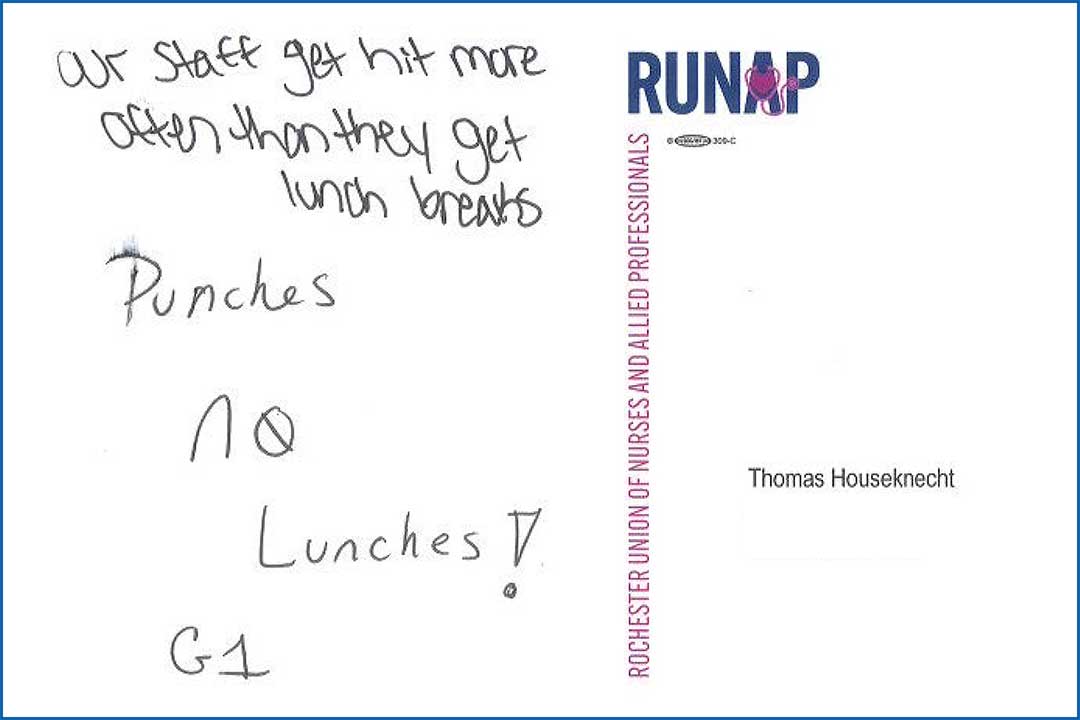 our staff get hit more
often than they get
lunch breaks
Punches
no
Lunches!
G1
RUNAP
309-C
ROCHESTER UNION OF NURSES AND ALLIED PROFESSIONALS
Thomas Houseknecht